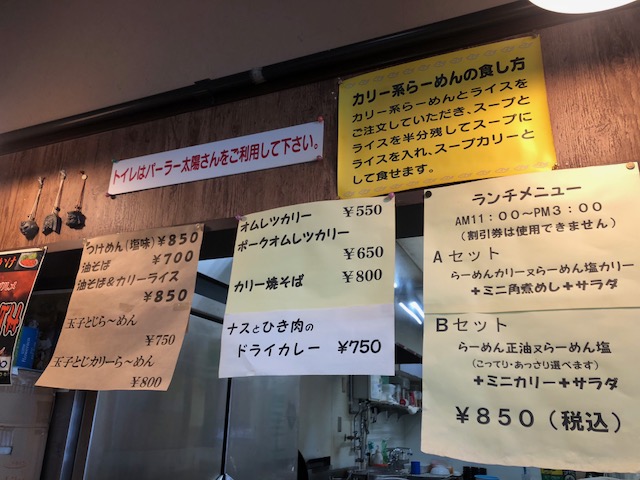 トイレはパーラー太陽さんをご利用して下さい。
カリー系らーめんの食し方
カリー系らーめんとライスを
ご注文していただき、スープと
ライスを半分残してスープに
ライスを入れ、スープカリーと
して食せます。
つけめん(塩味)¥850
油そば ¥700
油そば&カリーライス
¥850
玉子とじら~めん
¥750
玉子とじカリーら~めん
¥800
オムレツカリー ¥550
ポークオムレツカリー
¥650
カリー焼そば ¥800
ナスとひき肉の
ドライカレー ¥750
ランチメニュー
AM11:00~PM3:00
(割引券は使用できません)
Aセット
らーめんカリーヌらーめん塩カリー
+ミニ角煮めし+サラダ
Bセット
らーめん正油ヌらーめん塩
(こってり・あっさり選べます)
+ミニカリー+サラダ
¥850(税込)